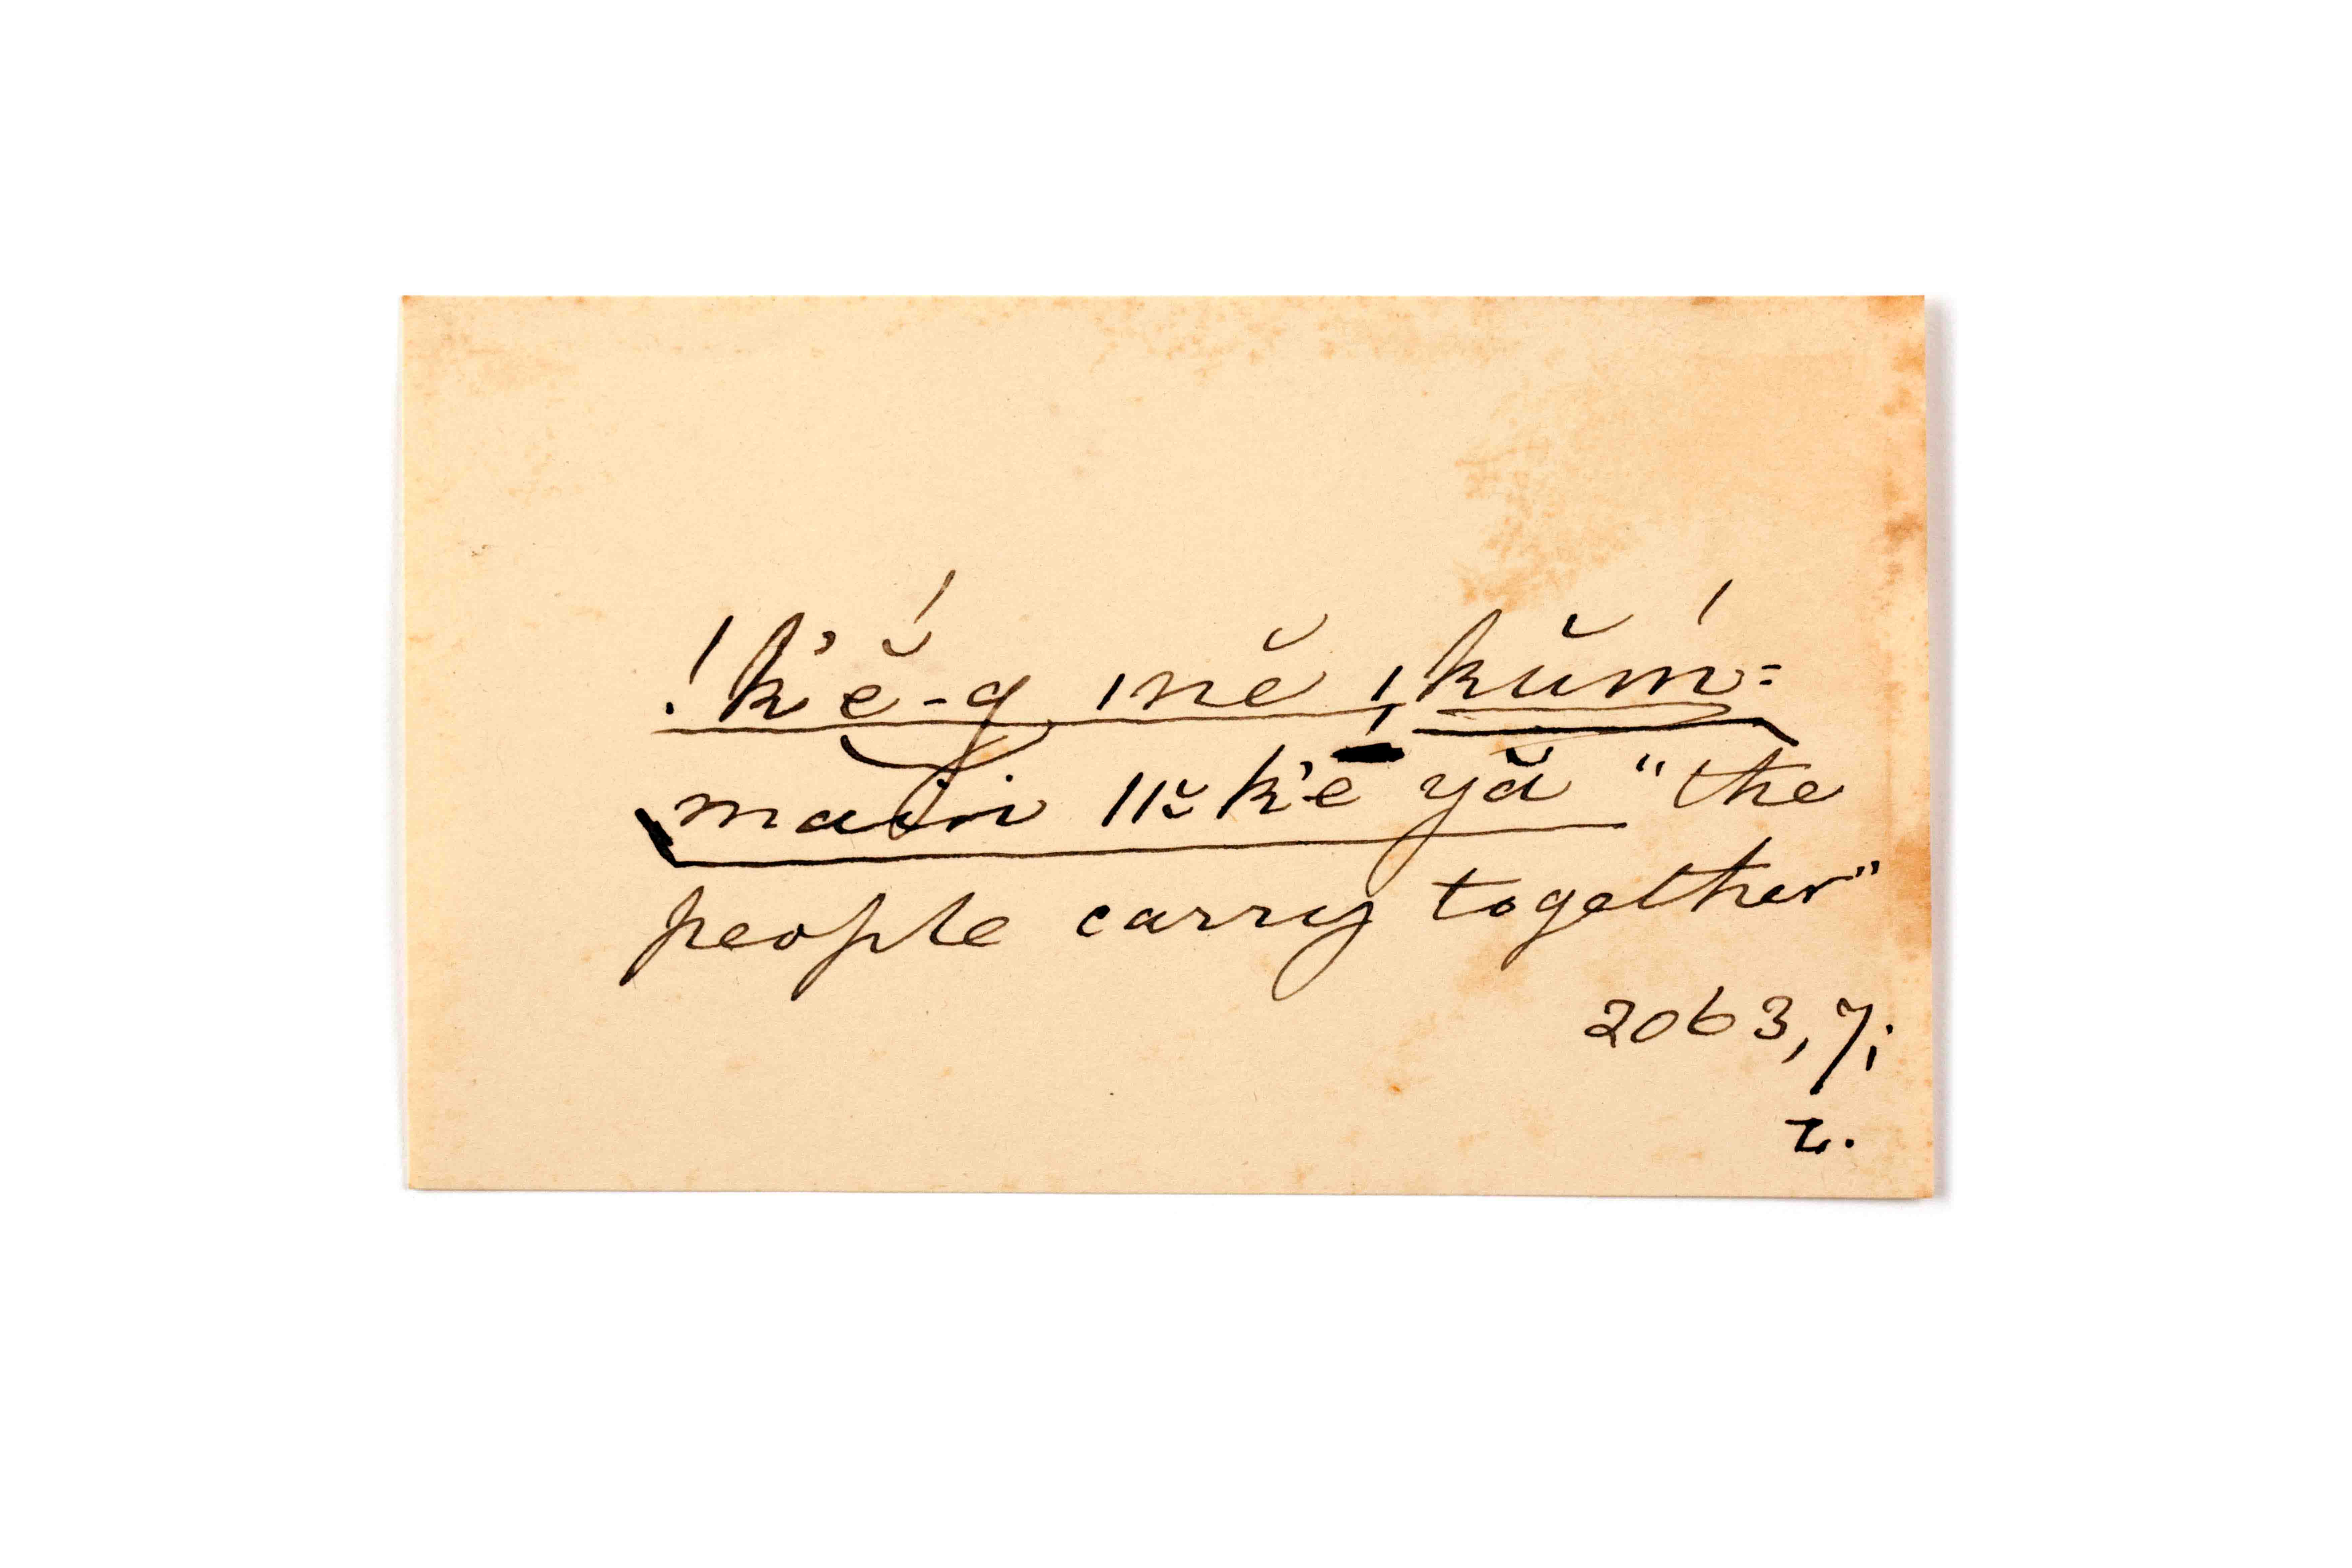 !k'ĕ́-g ǀnĕ ǃkŭḿ=
maiñ ǁ̆k'ē yă "the
people carry together"
2063,7;
z.